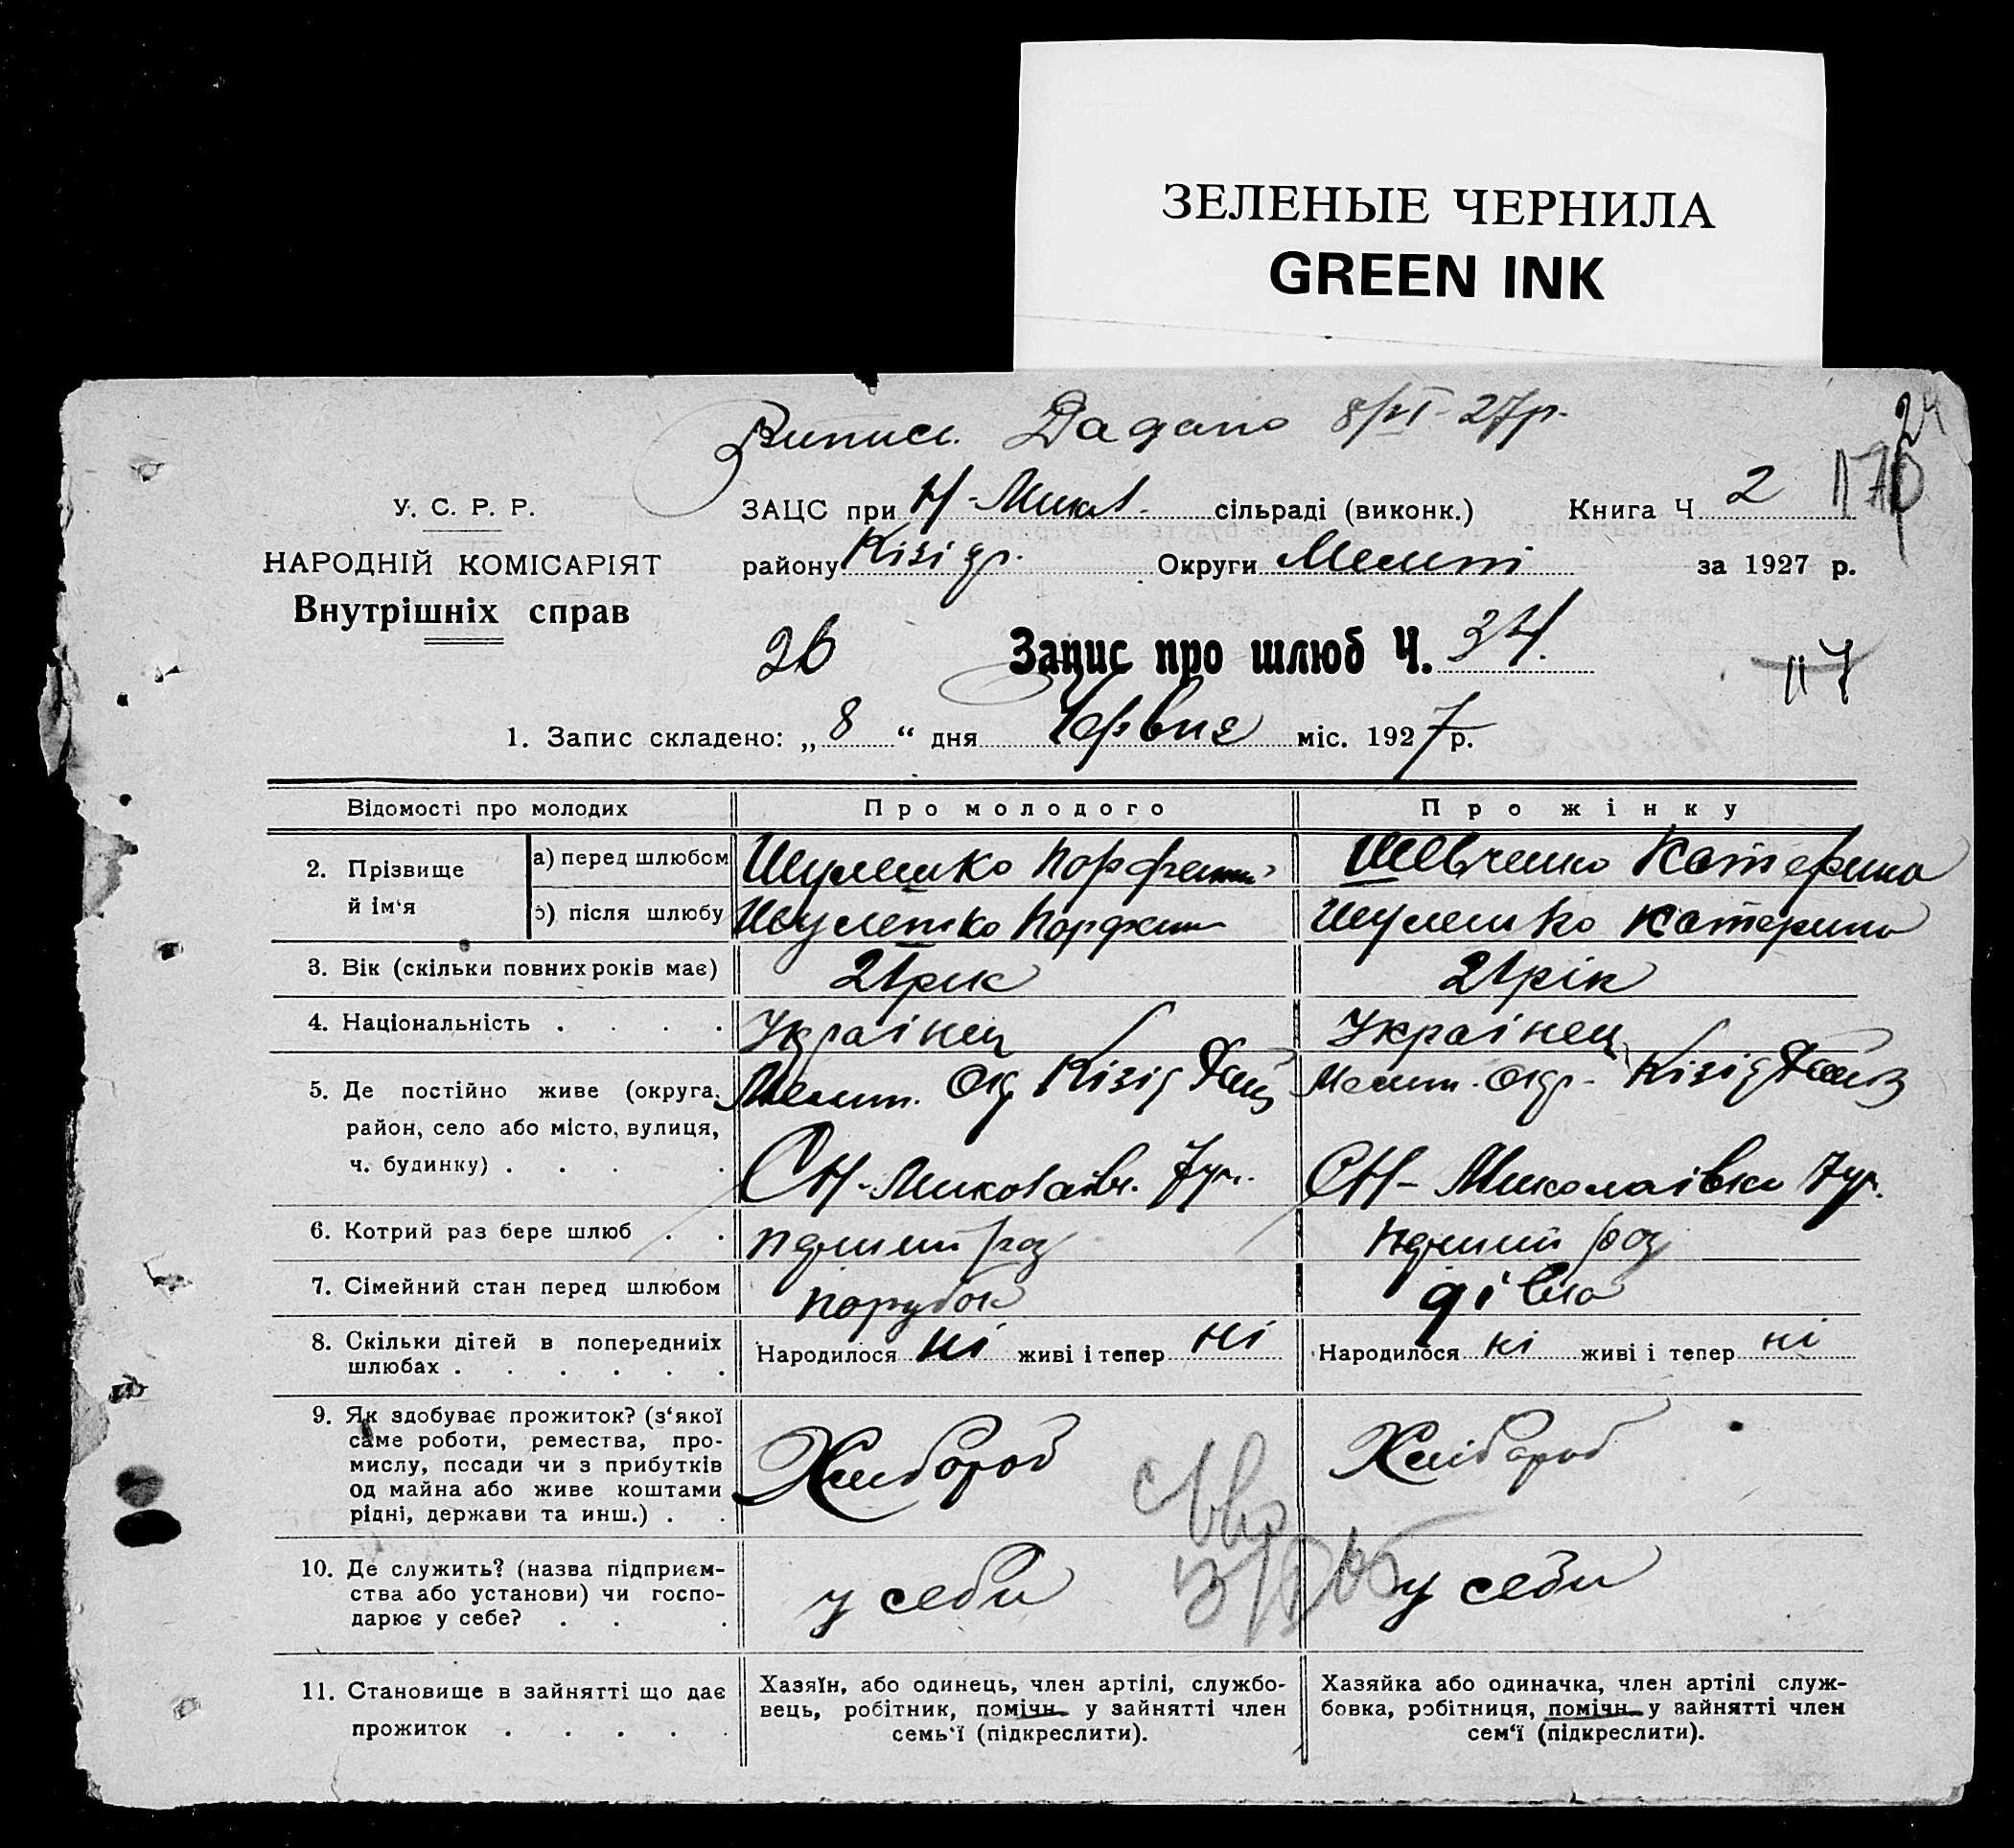 ЗЕЛЕНЫЕ ЧЕРНИЛА
GREEN INK
Випись Дадано 8/VI-27р.
24
170
У. С. Р. Р.
НАРОДНІЙ КОМІСАРІЯТ
Внутрішніх справ
ЗАЦС при Н-Микол. сільраді (виконк.) Книга Ч 2
району Кізіяр. Округи Меліт за 1927 р.
26 Запис про шлюб Ч. 34.
117
1. Запис складено: „ 8 “ дня Червня міс. 1927 р.
Відомості про молодих Про молодого Про жінку
2. Прізвище й ім‘я
а) перед шлюбом Шулешко Порфений Шевченко Катерина
б) після шлюбу Шулешко Порфений Шулешко Катерина
3. Вік (скільки повних років має) 21 рік 21 рік
4. Національність . . . . Українец Українец
5. Де постійно живе (округа, район, село або місто, вулиця, ч. будинку) . . . .
Меліт. Окр Кізіяр Меліт. Окр. Кізіяр
СН-Миколаївк. СН-Миколаївка
6. Котрий раз бере шлюб . .
7. Сімейний стан перед шлюбом порубок дівка
8. Скільки дітей в попередніх шлюбах . . . . . .
Народилося ні живі і тепер ні Народилося ні живі і тепер ні
9. Як здобуває прожиток? (з‘якої
саме роботи, ремества, про-
мислу, посади чи з прибутків
од майна або живе коштами
рідні, держави та инш.) . .
Хлибороб Хлібороб
10. Де служить? (назва підприєм-
ства або установи) чи госпо-
дарює у себе? . . .
у себи у себи
11. Становище в зайнятті що дає
прожиток . . . . .
Хазяїн, або одинець, член артілі, службо-
вець, робітник, помічн. у зайнятті член
семь‘ї (підкреслити).
Хазяйка або одиначка, член артілі служ-
бовка, робітниця, помічн. у зайнятті член
сем‘ї (підкреслити).